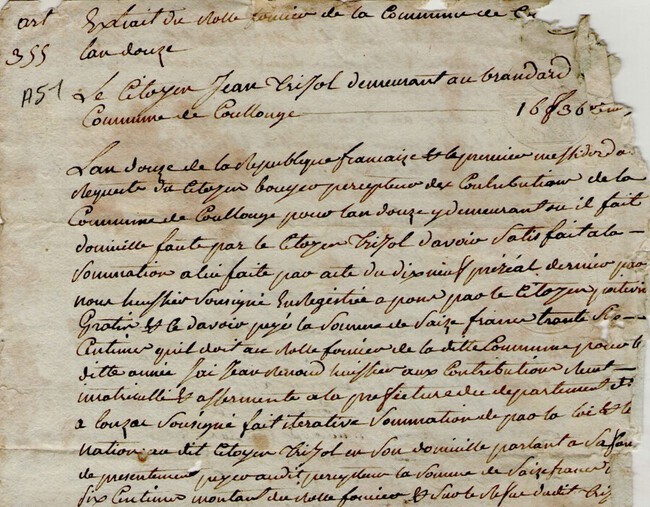 art Extrait du Rolle foncier de la Commune de
355 lan douze
A51 Le Citoyen Jean Trizol demeurant au brandard
Commune de Coullonge 16 f 36
Lan douze de la Republique francaise & le premier messidor a
Requete du Citoyen percepteur des Contributions de la
Commune de Coullonge pour lan douze y demeurant ou il fait
domicille faute par le Citoyen Trizol davoir Satisfait a la
Sommation a lui faite par acte du dixneuf prereal dernier par
nous huissier Sousigné Enregistrée a pons par le Citoyen
Gratis & de davoir peyé la Somme de Saize francs trante Six
Centimes quil doit au Rolle foncier de la ditte Commune pour la
ditte année Jai Jean Renaud huissier aux Contributions
imatriculle & assermenté a la prefecture du departement
Sousigné fait iterative Sommation de par la loi & la
nation au dit Citoyen Trizol en Son domicille parlant a Sa
de presentement peyer audit percepteur la Somme de Saize francs
Six Centimes montant du Rolle foncier & Sur le Refus dudit